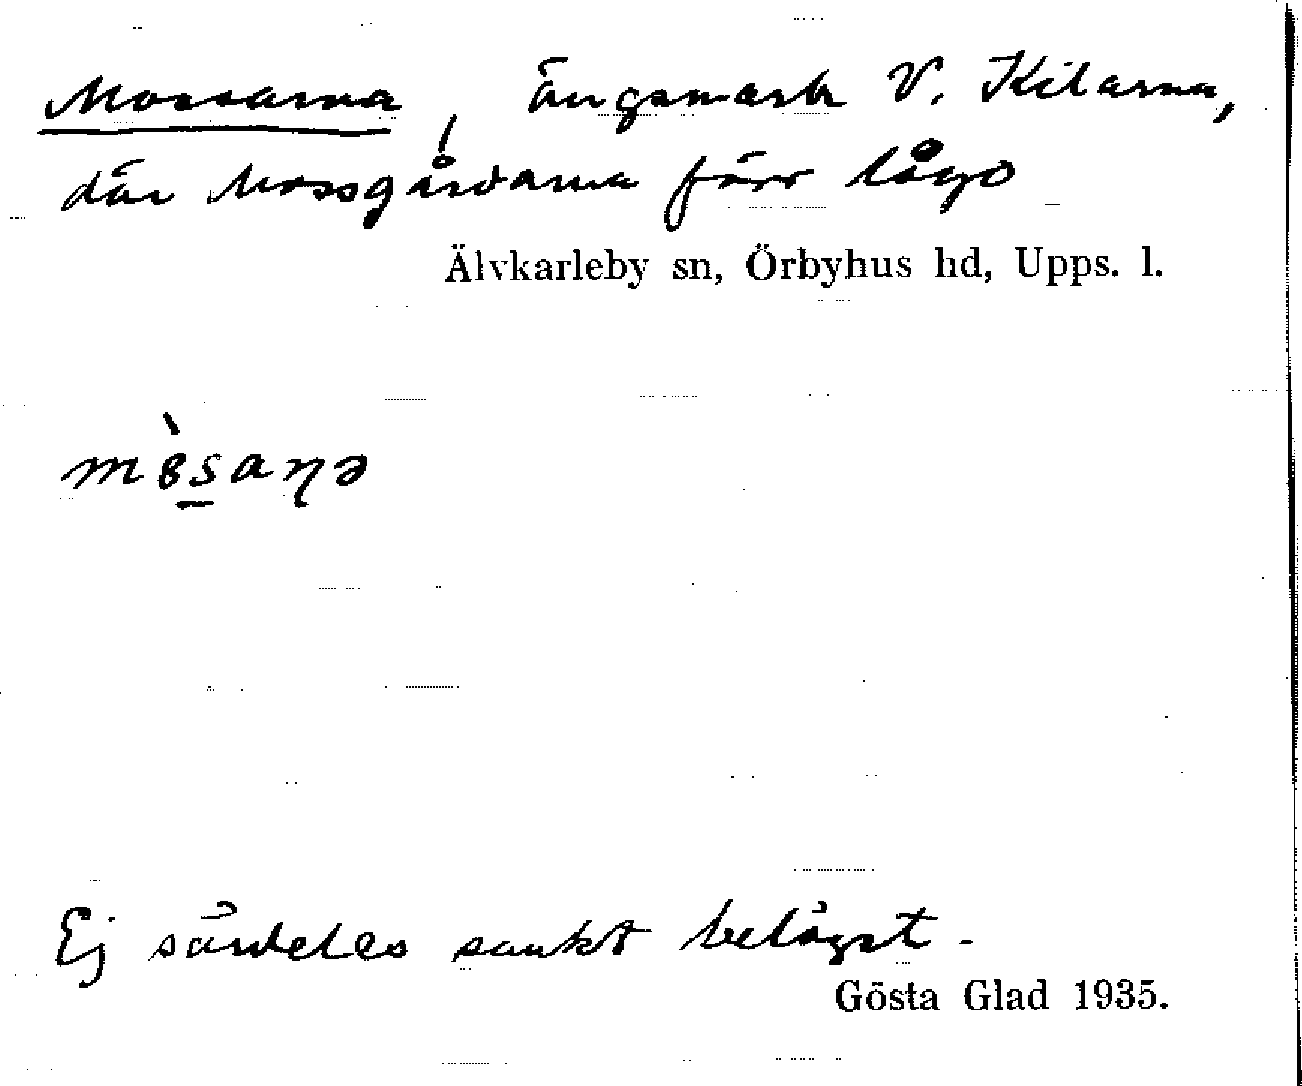 Mossarna, Ängsmark V. Kilarna,
där Mossgårdarna förr lågo
Älvkarleby sn, Örbyhus hd, Upps. l.
mòsaɳə
Ej särdeles sankt belägst.
Gösta Glad 1935.